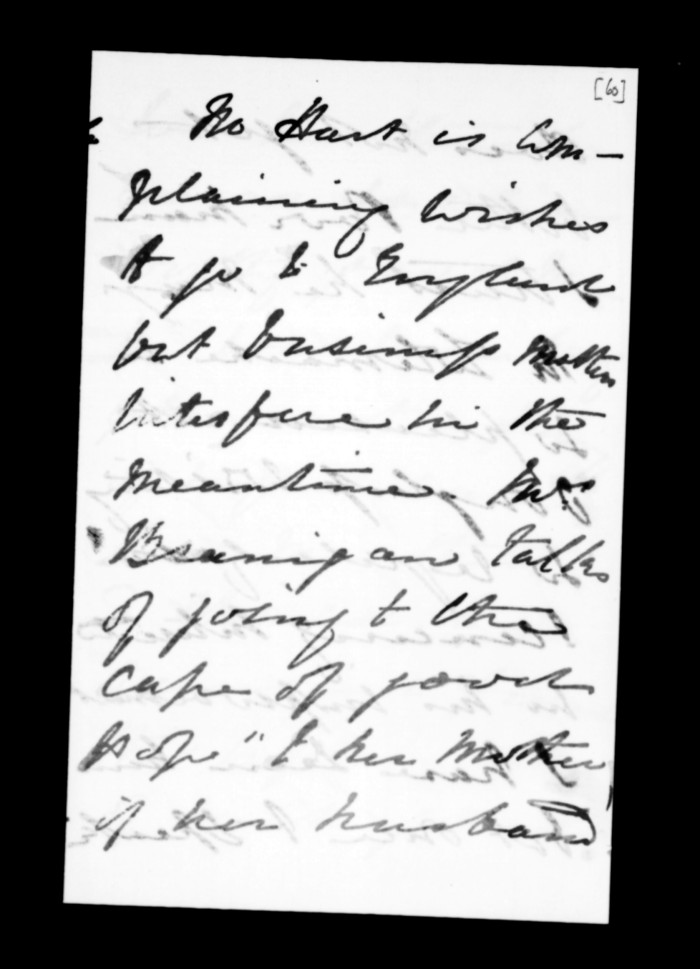 [60]
Mr Hart is com-
plaining wishes
to go to England
but business matters
interfere in the
meantime. Mrs
Branigan talks
of going to the
Cape of good
Hope" to her Mother
if her husband